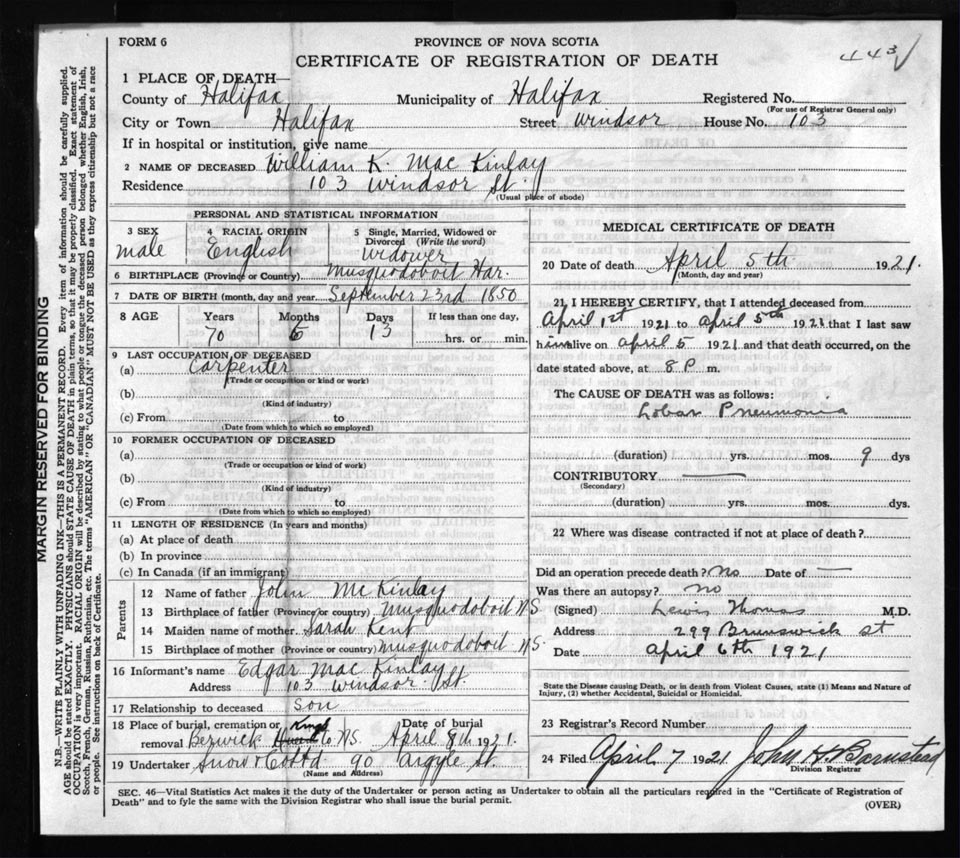 FORM 6
PROVINCE OF NOVA SCOTIA
CERTIFICATE OF REGISTRATION OF DEATH
443
1 PLACE OF DEATH—
County of Halifax Municipality of Halifax Registered No.
(For use of Registrar General only)
City or Town Halifax Street Windsor House No. 103
If in hospital or institution, give name
2 NAME OF DECEASED William K. Mac Kinlay
Residence 103 Windsor St.
(Usual place of abode)
PERSONAL AND STATISTICAL INFORMATION
3 SEX 4 RACIAL ORIGIN 5 Single, Married, Widowed or Divorced (Write the word)
male English Widower
6 BIRTHPLACE (Province or Country) Musquodoboit Har.
7 DATE OF BIRTH (month, day and year) September 23rd 1850
8 AGE Years Months Days If less than one day,
70 6 13 hrs. or min.
9 LAST OCCUPATION OF DECEASED
(a) Carpenter
(Trade or occupation or kind or work)
(b)
(Kind of industry)
(c) From to
(Date from which to which so employed)
10 FORMER OCCUPATION OF DECEASED
(a)
(Trade or occupation or kind of work)
(b)
(Kind of industry)
(c) From to
(Date from which to which so employed)
11 LENGTH OF RESIDENCE (In years and months)
(a) At place of death
(b) In province
(c) In Canada (if an immigrant)
Parents
12 Name of father John McKinlay
13 Birthplace of father (Province or country) Musquodoboit N.S.
14 Maiden name of mother Sarah Kent
15 Birthplace of mother (Province or country) Musquodoboit N.S.
16 Informant's name Edgar Mac Kinlay
Address 103 Windsor St.
17 Relationship to deceased Son
18 Place of burial, cremation or removal Berwick Kings Co N.S. Date of burial April 8th 1921.
19 Undertaker Snow & Co Ltd 90 Argyle St.
(Name and Address)
MEDICAL CERTIFICATE OF DEATH
20 Date of death April 5th 1921.
(Month, day and year)
21 I HEREBY CERTIFY, that I attended deceased from
April 1st 1921 to April 5th 1921 that I last saw
him alive on April 5 1921 and that death occurred, on the
date stated above, at 8 P m.
The CAUSE OF DEATH was as follows:
Lobar Pneumonia
(duration) yrs. mos. 9 dys
CONTRIBUTORY —
(Secondary)
(duration) yrs. mos. dys.
22 Where was disease contracted if not at place of death?
Did an operation precede death? No Date of —
Was there an autopsy? No
(Signed) Lewis Thomas M.D.
Address 299 Brunswick St
Date April 6th 1921
State the Disease causing Death, or in death from Violent Causes, state (1) Means and Nature of
Injury, (2) whether Accidental, Suicidal or Homicidal.
23 Registrar's Record Number
24 Filed April 7 1921 John H Barnstead
Division Registrar
SEC. 46—Vital Statistics Act makes it the duty of the Undertaker or person acting as Undertaker to obtain all the particulars required in the "Certificate of Registration of
Death" and to fyle the same with the Division Registrar who shall issue the burial permit.
(OVER)
MARGIN RESERVED FOR BINDING
N.B.—WRITE PLAINLY, WITH UNFADING INK—THIS IS A PERMANENT RECORD. Every item of information should be carefully supplied.
AGE should be stated EXACTLY. PHYSICIANS should STATE CAUSE OF DEATH in plain terms, so that it may be properly classified. Exact statement of
OCCUPATION is very important. RACIAL ORIGIN will be described by stating to what people or tongue the deceased person belonged whether English, Irish,
Scotch, French, German, Russian, Ruthenian, etc. The terms "AMERICAN" OR "CANADIAN" MUST NOT BE USED as they express citizenship but not a race
or people. See instructions on back of Certificate.